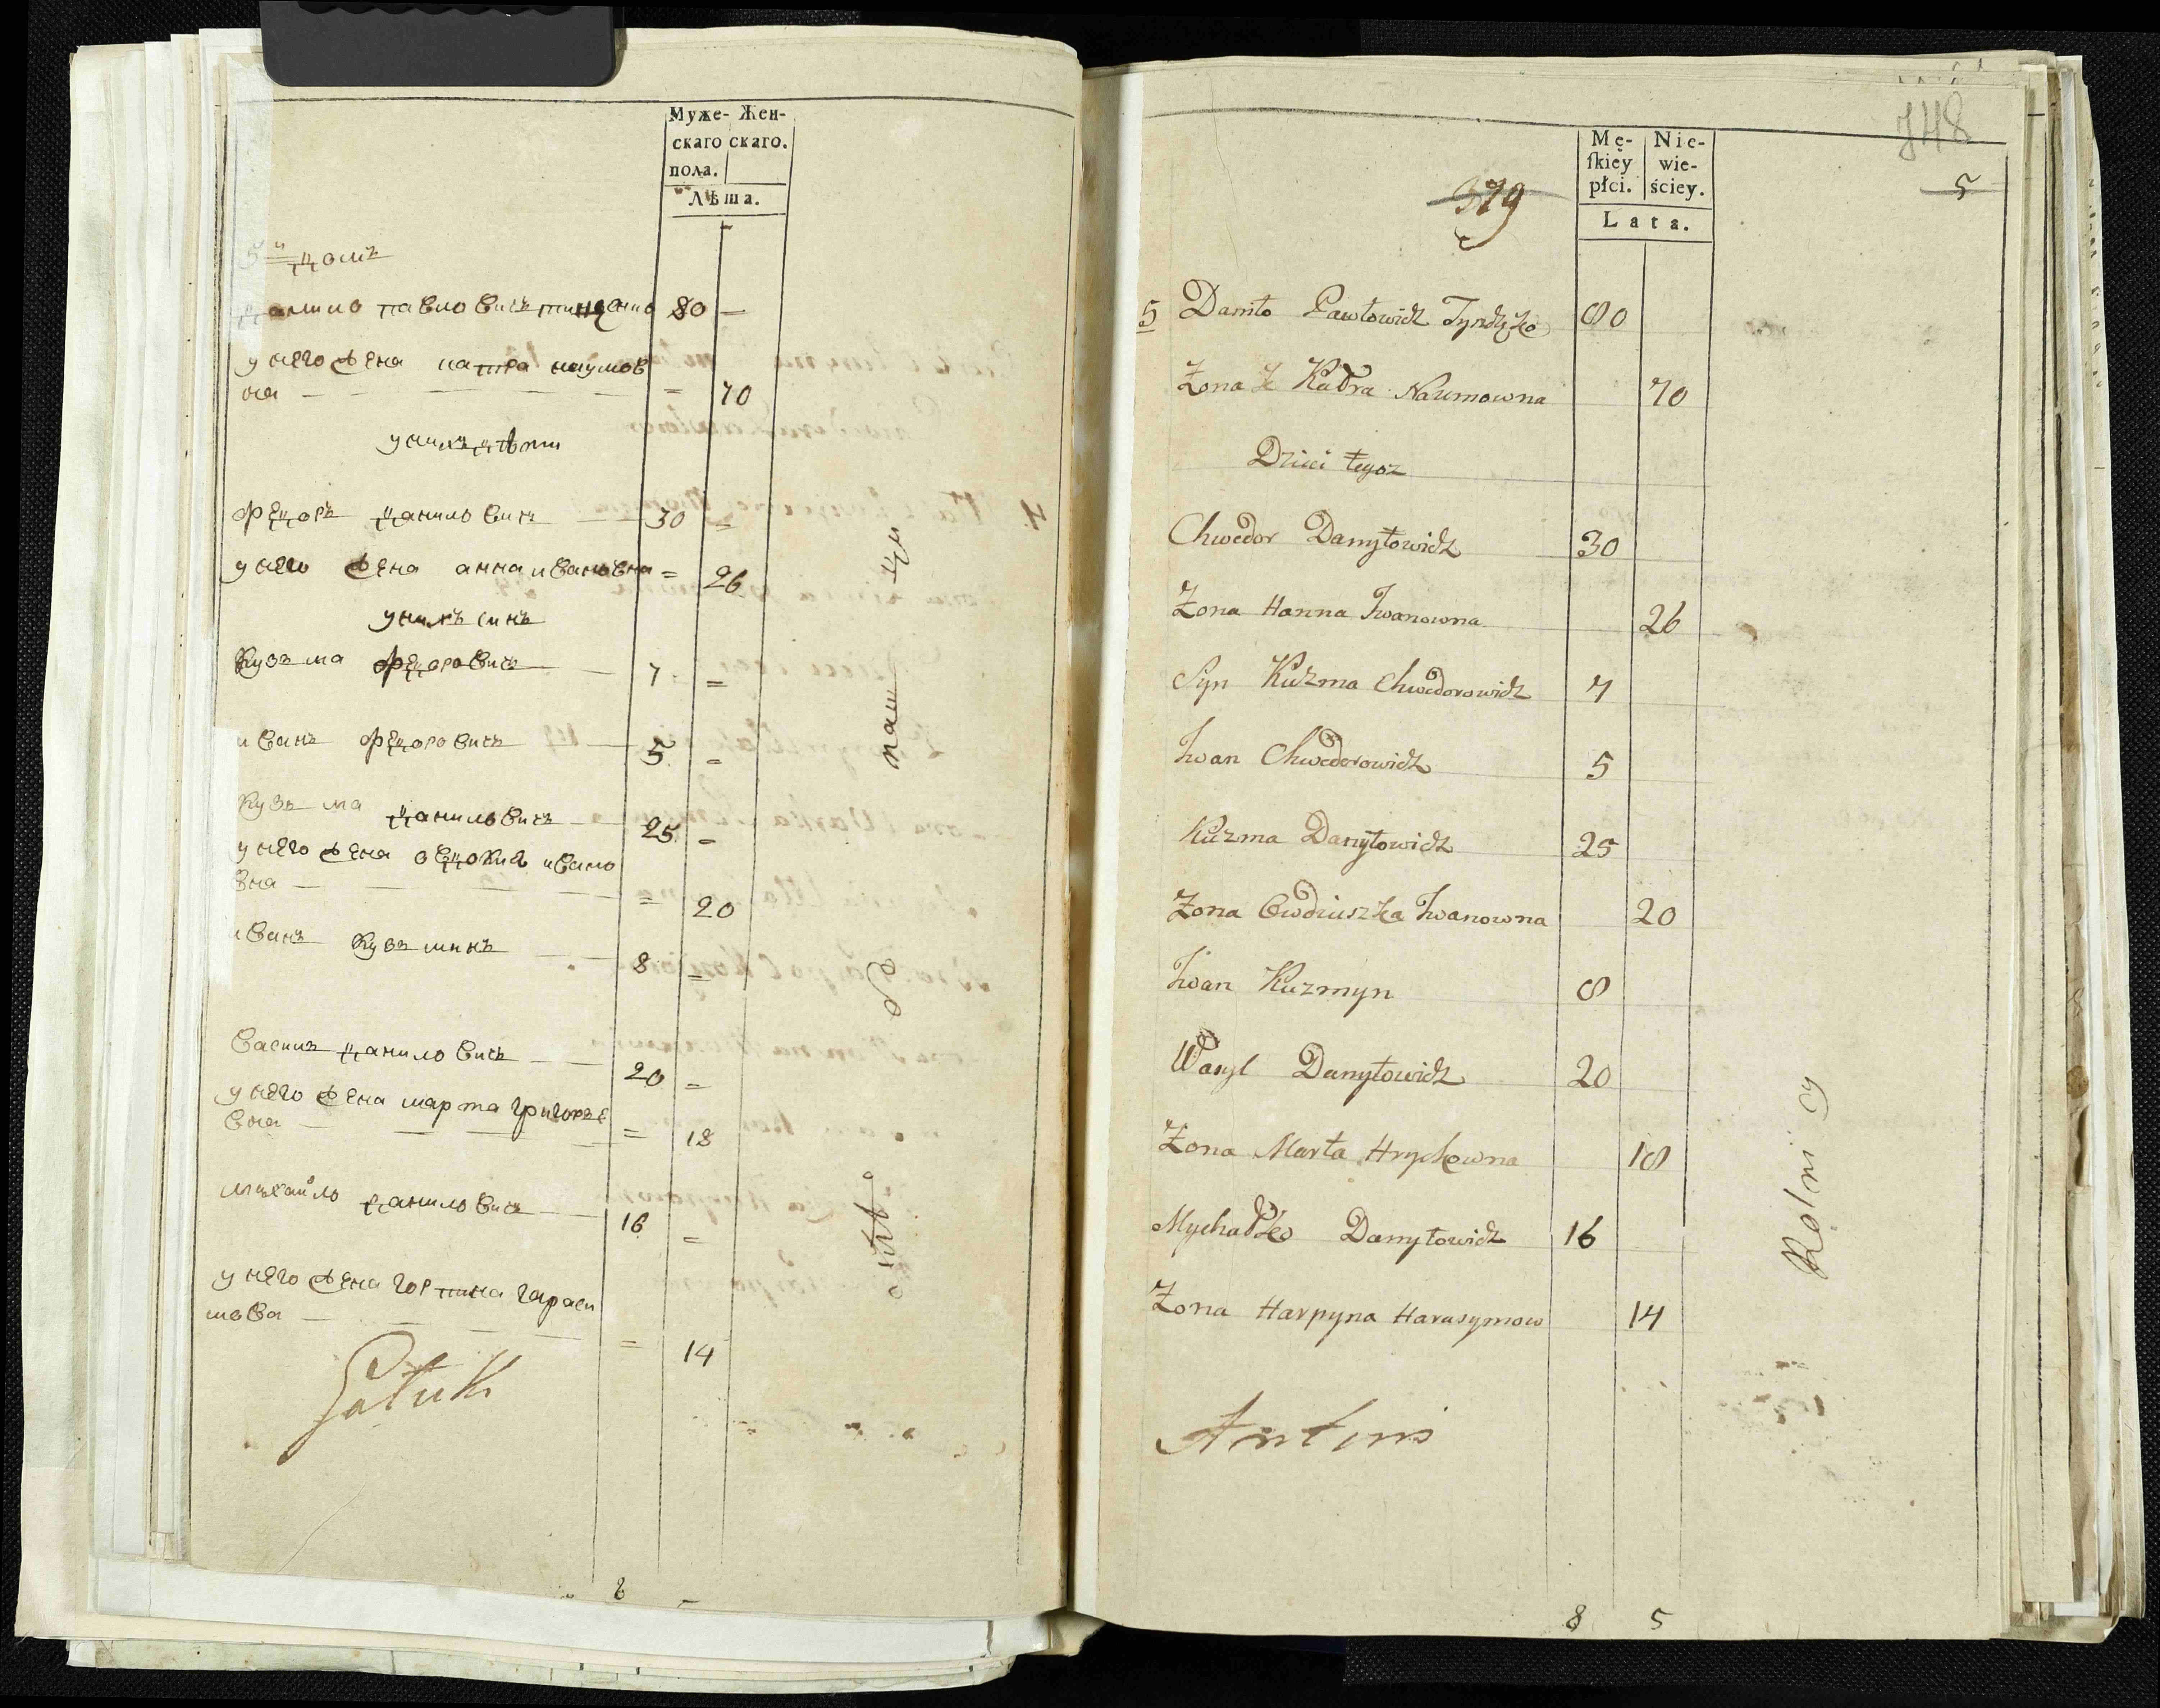 Муже- Жен-
скаго скаго.
пола.
Лѣта.
5й домъ
Данило Павловичъ 80 —
у него жена катра наумов
на — = 70
у нихъ дѣти
Федоръ даниловичъ — 30 =
у него жена анна ивановна = 26
у нихъ синъ
Кузьма федоровичъ — 7 =
иванъ федоровичъ — 5 =
Кузьма даниловичъ — 25 =
у него жена овдокия ивано
вна — = 20
иванъ Кузьминъ — 8 =
Василь даниловичъ — 20 =
у него жена марта григорье
вна — = 18
михайло даниловичъ — 16 =
у него жена горпина гараси
мова — = 14
8
748
5
379
Mę- Nie-
skiey wie-
płci. ściey.
Lata.
5 Daniło Pawłowicz 80
Żona Katra Naumowna 70
Dzieci tegoz
Chwedor Danyłowicz 30
Żona Hanna Iwanowna 26
Syn Kuzma Chwedorowicz 7
Iwan Chwedorowicz 5
Kuzma Danyłowicz 25
Żona Owdiuszka Iwanowna 20
Iwan Kuzmyn 8
Wasyl Danyłowicz 20
Żona Marta Hryckowna 18
Mychałko Danyłowicz 16
Żona Harpyna Harasymow 14
Rolnicy
Antoni
8 5